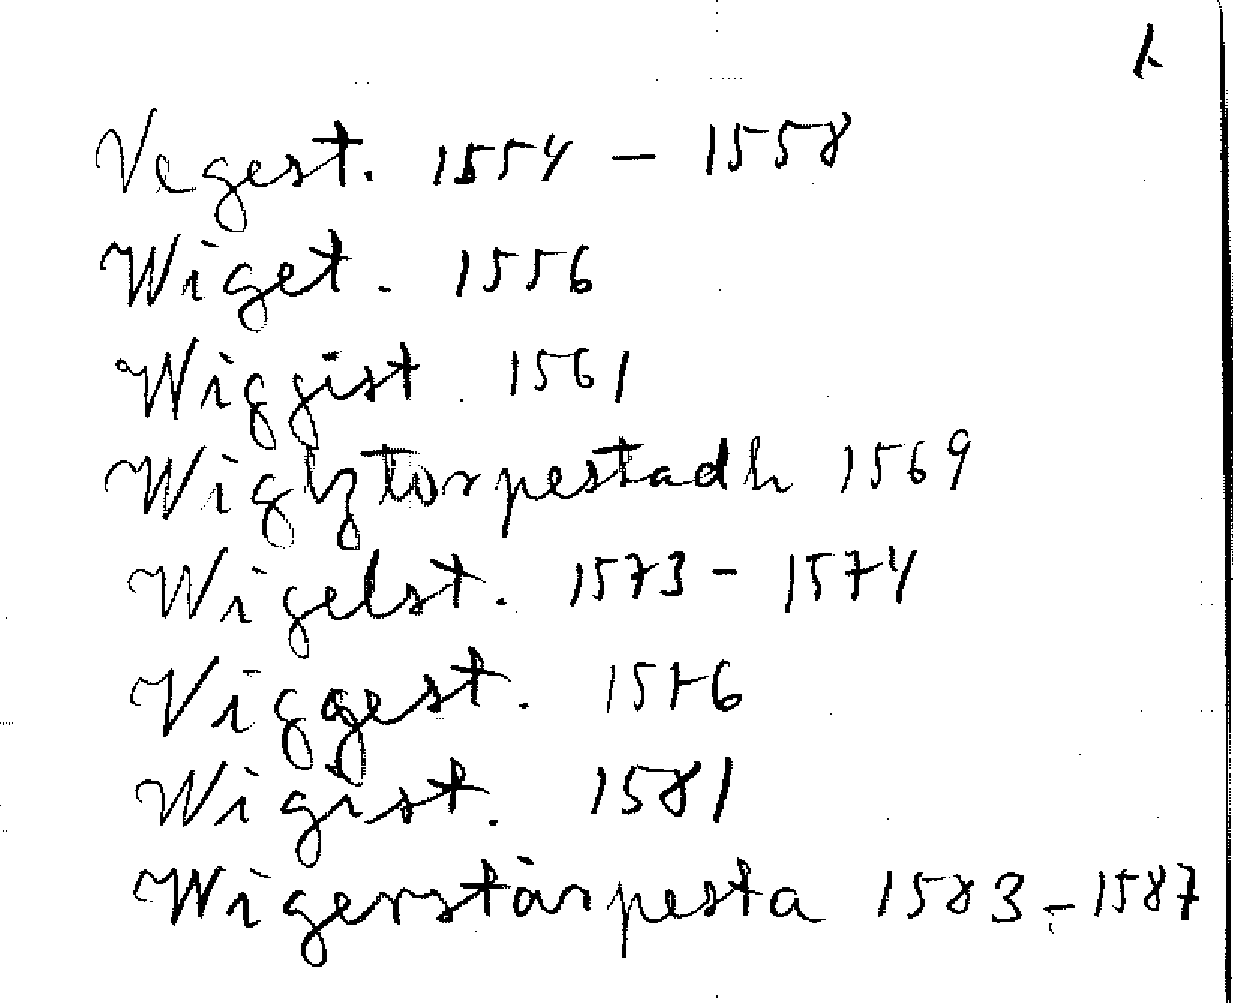 Vegest. 1554 – 1558
Wiget. 1556
Wiggist. 1561
Wiglztorpestadh 1569
Wigelst. 1573 - 1574
Viggest. 1576
Wigist. 1581
Wigerstårpesta 1583 - 1587